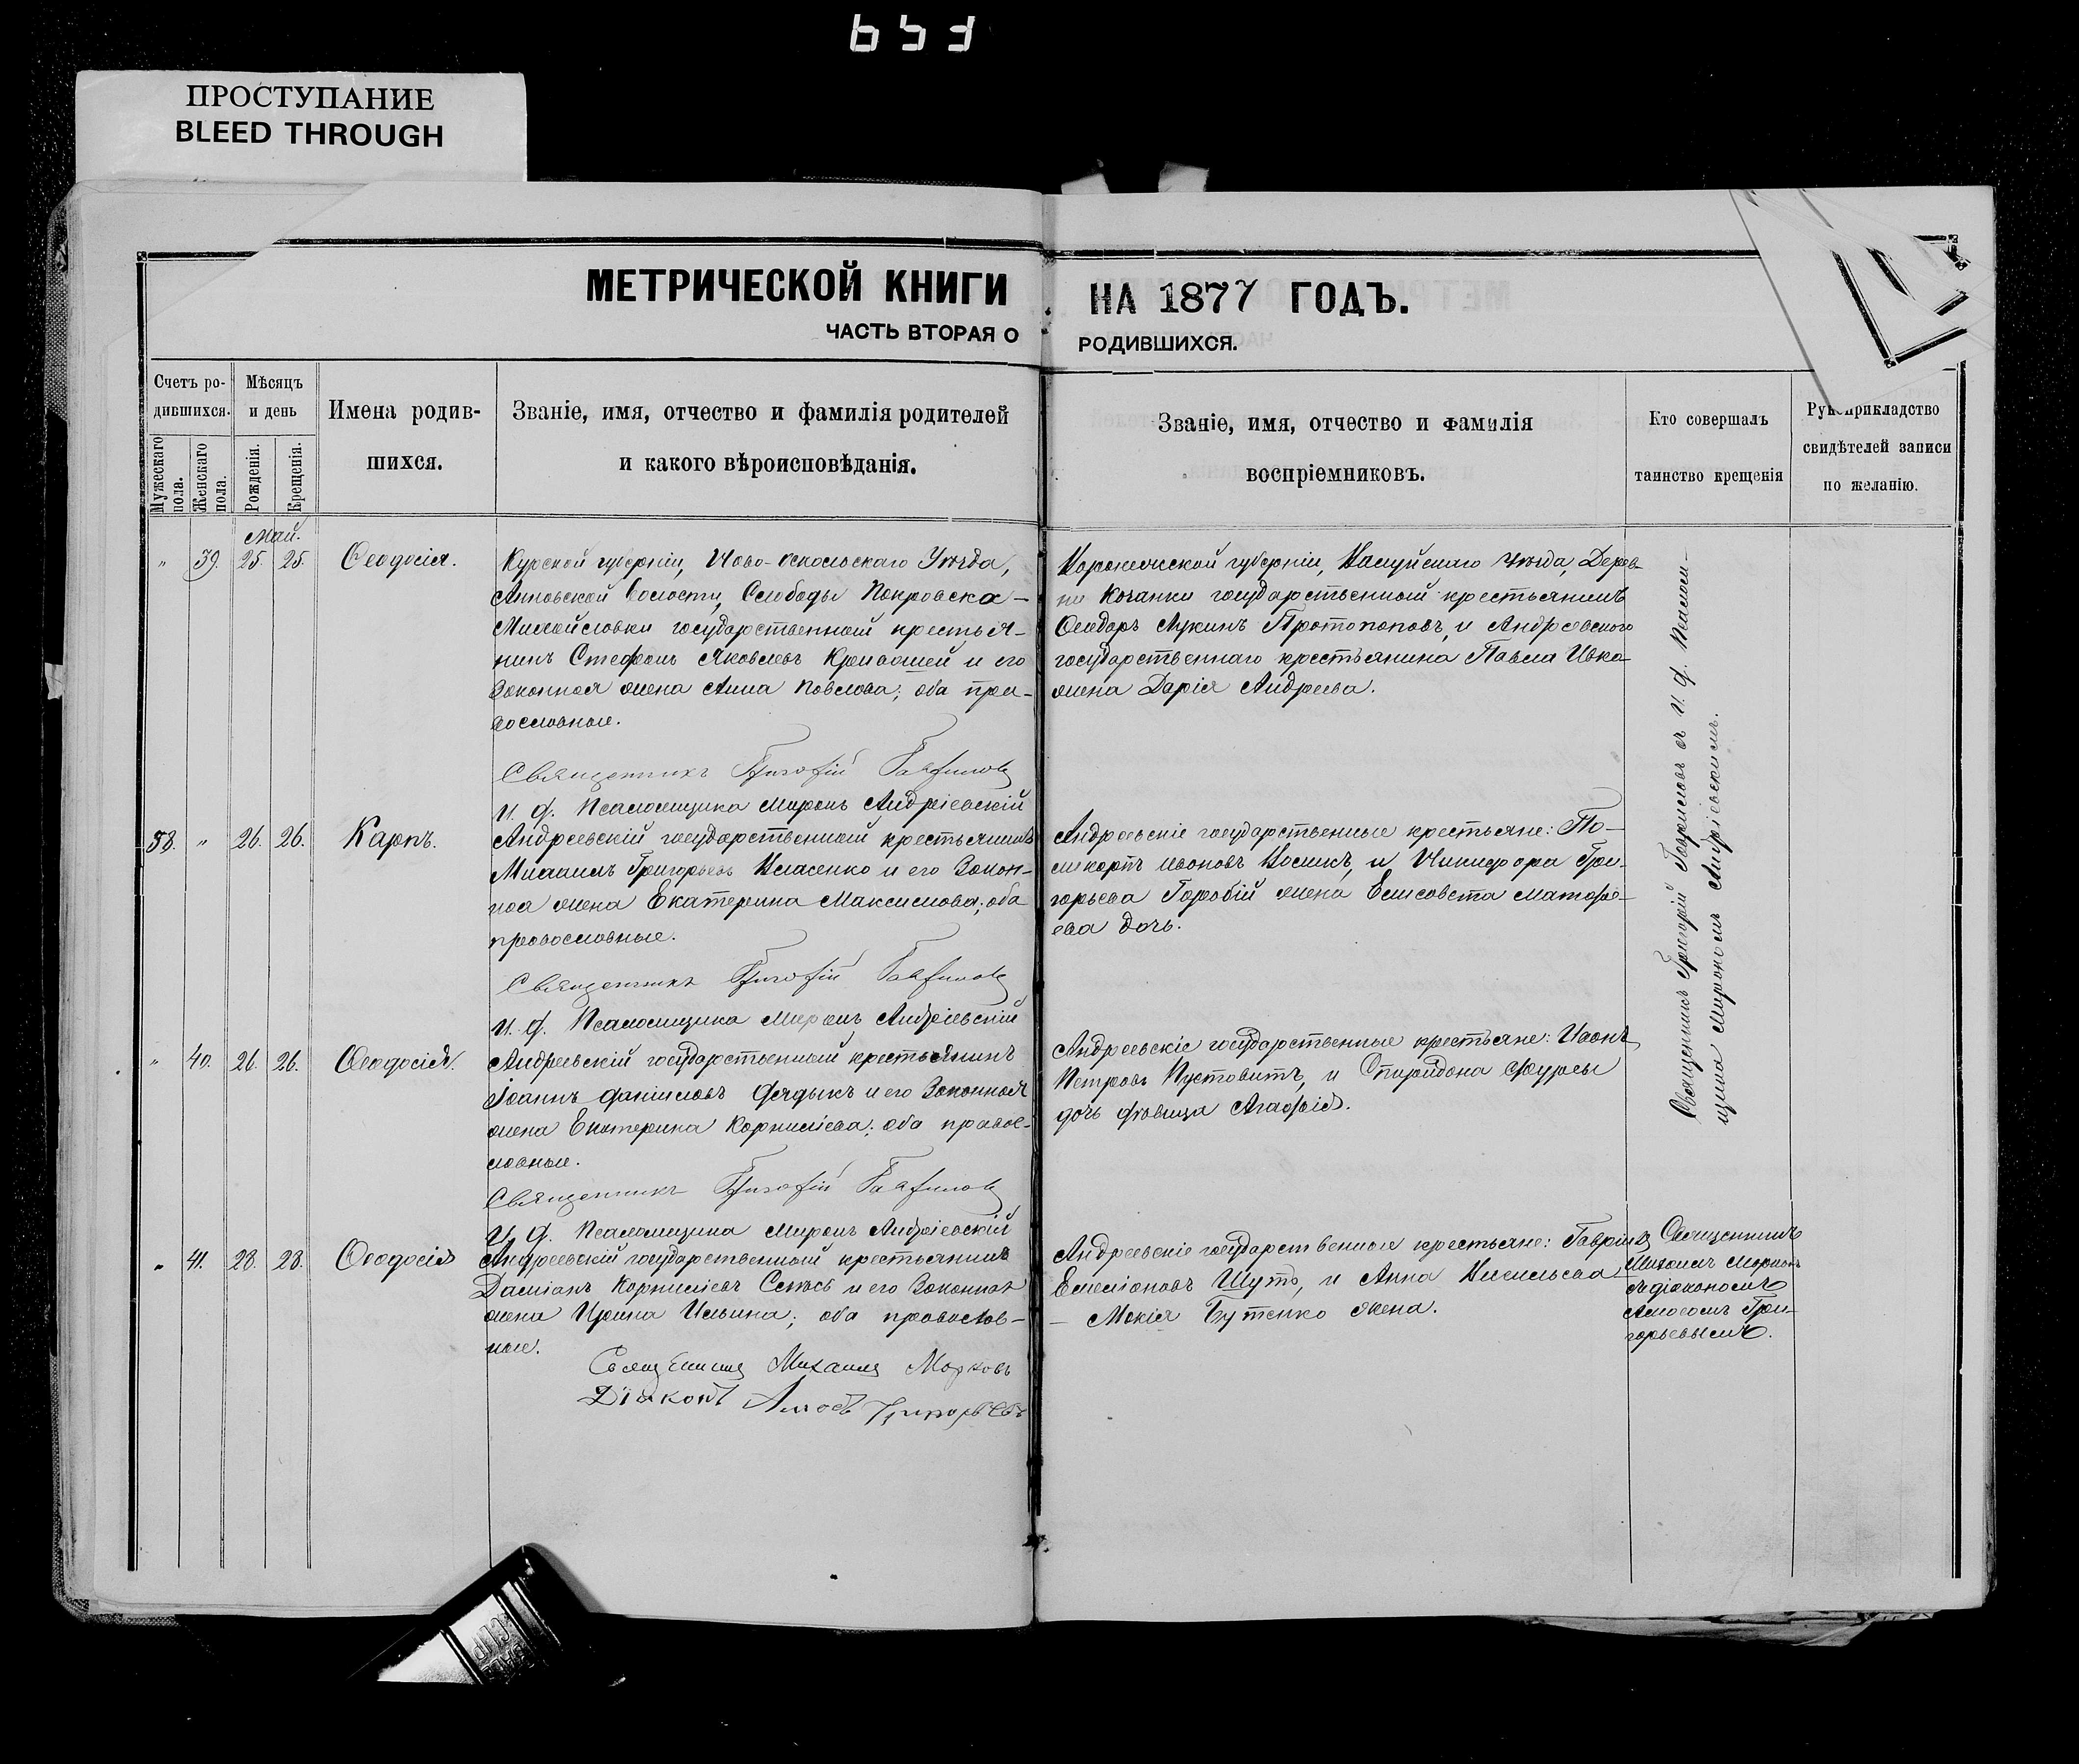 653
ПРОСТУПАНИЕ
BLEED THROUGH
МЕТРИЧЕСКОЙ КНИГИ
ЧАСТЬ ВТОРАЯ О
НА 1877 ГОДЪ.
РОДИВШИХСЯ.
Счетъ ро-
дившихся.
Мужескаго пола.
Женскаго пола.
Мѣсяцъ
и день
Рожденія.
Крещенія.
Имена родив-
шихся.
Званіе, имя, отчество и фамилія родителей
и какого вѣроисповѣданія.
Званіе, имя, отчество и фамилія
воспріемниковъ.
Кто совершалъ
таинство крещенія
Рукоприкладство
свидѣтелей записи
по желанію.
Май.
" 39. 25. 25. Ѳеодосія.
Курской губерніи, Ново-Оскольскаго Уѣзда,
волости, Слободы Покровско-
Михайловки государственный крестья-
нинъ Стефанъ Яковлевъ и его
законная жена Анна Павлова; оба пра-
вославные.
Священникъ Григорій Гавриловъ
И. д. Псаломщика Миронъ Андріевскій
Воронежской губерніи, Валуйскаго Уѣзда, Дерев-
ни Кочанки государственный крестьянинъ
Ѳеодоръ Лукинъ Протопоповъ, и Андреевского
государственнаго крестьянина Павла Ивка
жена Дарія Андреева.
Священникъ Григорій Гавриловъ съ И. д. Псалом-
щика Мирономъ Андріевскимъ.
38. " 26. 26. Карпъ.
Андреевскій государственный крестьянинъ
Михаилъ Григорьевъ Власенко и его Закон-
ная жена Екатерина Максимова; оба
православные.
Священникъ Григорій Гавриловъ
И. д. Псаломщика Миронъ Андріевскій
Андреевскіе государственные крестьяне: По-
ликарпъ Ивановъ Носикъ, и Никифора Гри-
горьева Горобій жена Елисавета Матфѣ-
ева дочь.
" 40. 26. 26. Ѳеодосія.
Андреевскій государственный крестьянинъ
Іоаннъ Даніиловъ Дядыкъ и его Законная
жена Екатерина Корниліева; оба правос-
лавные.
Священникъ Григорій Гавриловъ
И. д. Псаломщика Миронъ Андріевскій
Андреевскіе государственные крестьяне: Иванъ
Петровъ Пустовитъ, и Спиридона Фурсы
дочь дѣвица Агафія.
" 41. 28. 28. Ѳеодосія
Андреевскій государственный крестьянинъ
Даміанъ Корниліевъ и его Законная
жена Ирина Ильина; оба православ-
ные.
Священникъ Михаилъ Марковъ
Діаконъ Амосъ Григорьевъ
Андреевскіе государственные крестьяне: Гавріилъ
Емеліановъ Шуть, и Анна Васильева
- Мокія Бутенко жена.
Священникъ
Михаилъ Марковъ
съ діакономъ
Амосомъ Гри-
горьевымъ.